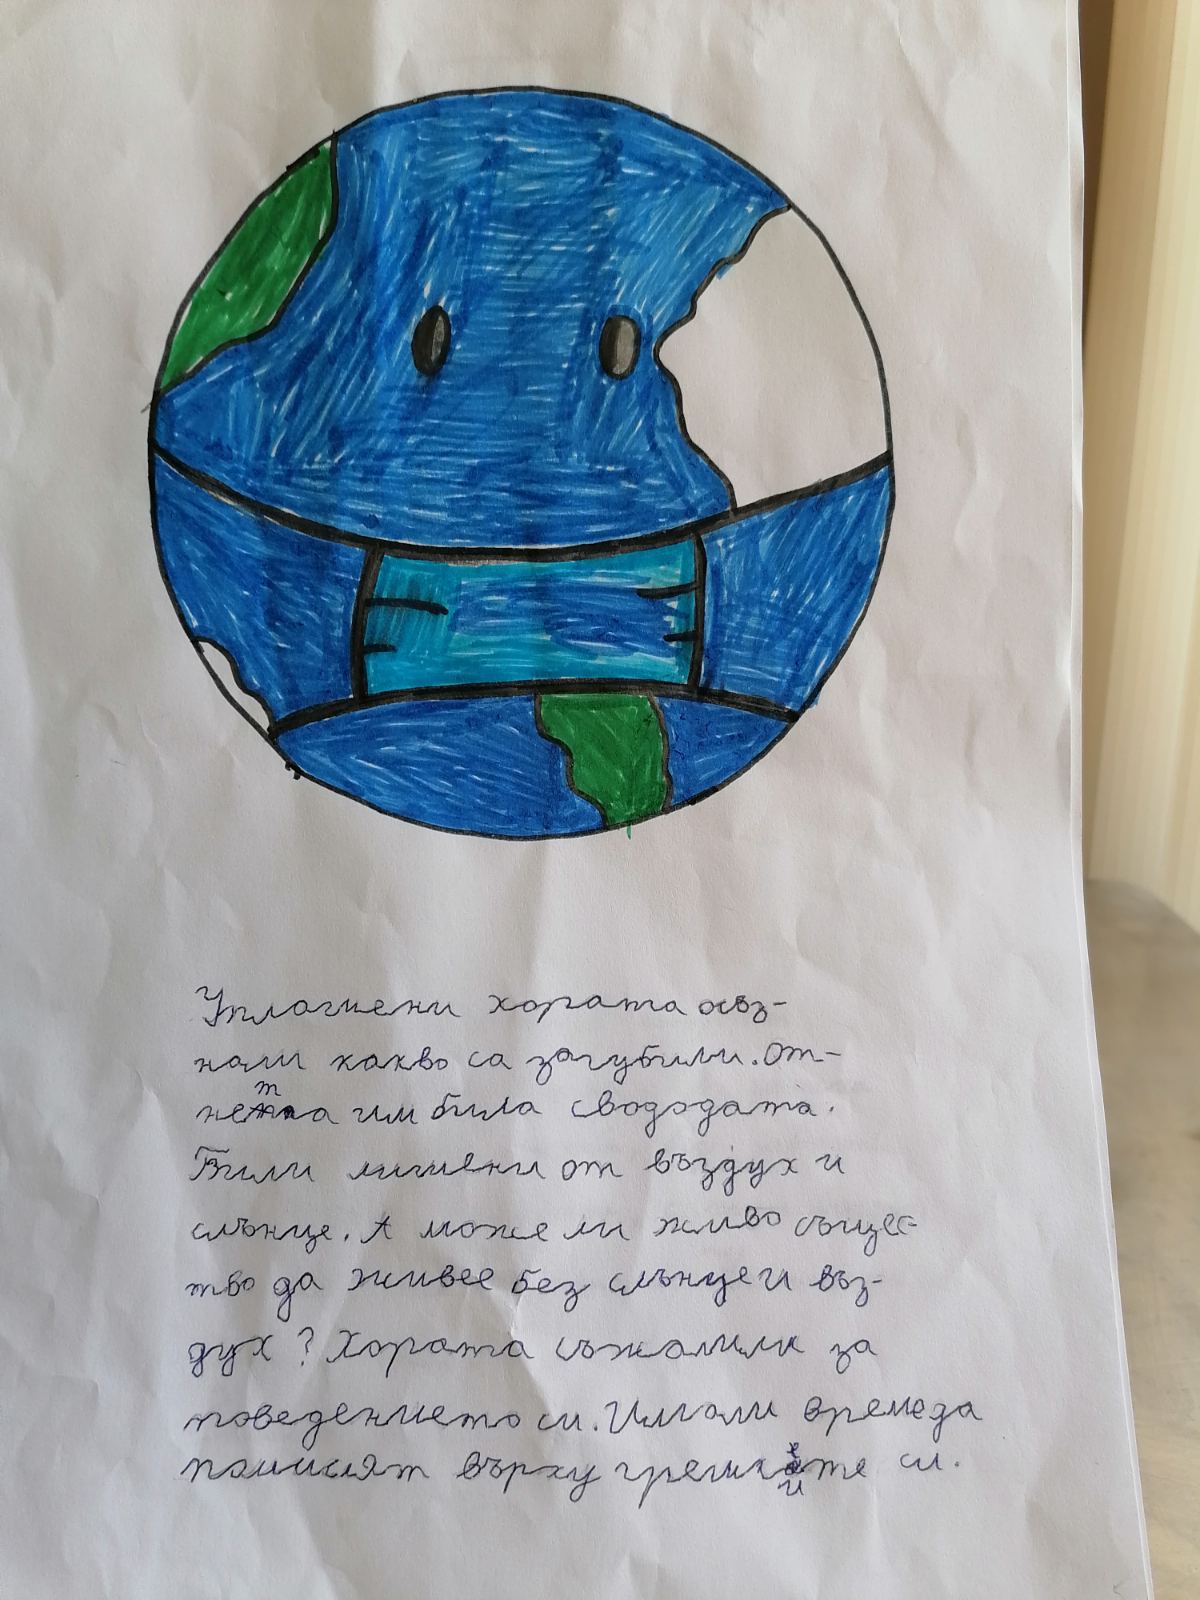 Уплашени хората осъз-
нали какво са загубили. От-
нета им била свододата.
Били лишени от въздух и
слънце. А може ли живо същес-
тво да живее без слънце и въз-
дух? Хората съжалили за
поведението си. Имали време да
помислят върху грешките си.